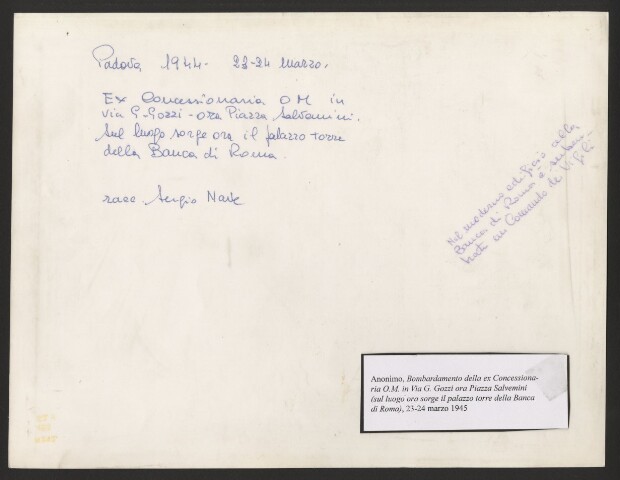 Padova 1944. 23-24 Marzo.
Ex Concessionaria OM in
via G. Gozzi - ora Piazza Salvemini.
Sul luogo sorge ora il palazzo torre
della Banca di Roma.
racc. Sergio
Nel moderno edificio della
Banca di Roma è
un Comando di Vigili
Anonimo, Bombardamento della ex Concessiona-
ria O.M. in Via G. Gozzi ora Piazza Salvemini
(sul luogo ora sorge il palazzo torre della Banca
di Roma), 23-24 marzo 1945